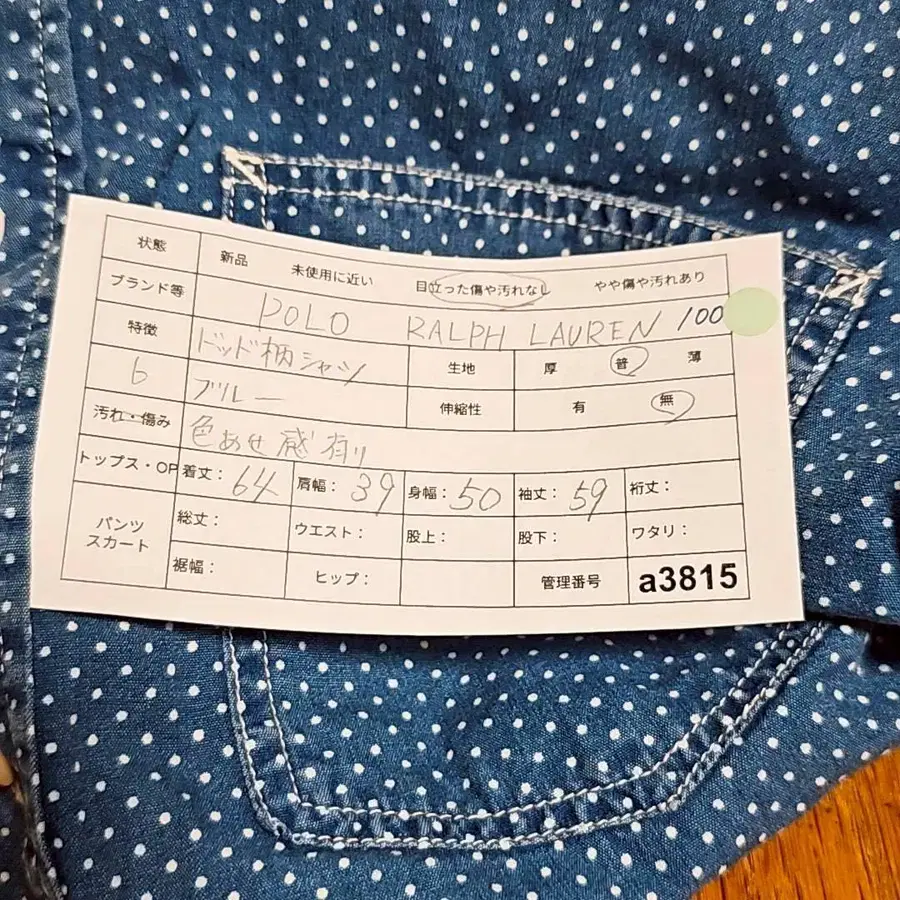 状態 新品 未使用に近い 目立った傷や汚れなし やや傷や汚れあり
ブランド等 POLO RALPH LAUREN 100
特徴 ドッド柄シャツ 生地 厚 普 薄
6 ブルー 伸縮性 有 無
汚れ・傷み 色あせ感有り
トップス・OP 着丈: 64 肩幅: 39 身幅: 50 袖丈: 59 裄丈:
パンツ 総丈: ウエスト: 股上: 股下: ワタリ:
スカート 裾幅: ヒップ: 管理番号 a3815